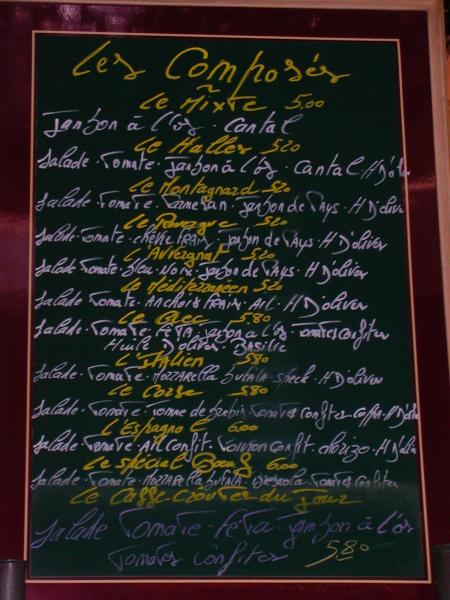 Les Composés
Le Mixte 5,00
Jambon à l'os · Cantal
Le Halles 5,20
Salade · Tomate · Jambon à l'os · Cantal · H D'oliv
Le Montagnard 5,20
Salade · Tomate · Parmesan · Jambon de Pays · H D'oliv
Le 5,20
Salade · Tomate · chèvre frais · Jambon de Pays · H D'oliver
L'Auvergnat 5,20
Salade Tomate · Bleu · Noix · Jambon de Pays · H D'oliver
Le Méditerranéen 5,20
Salade Tomate · Anchois frais · Ail · H D'oliver
Le Grec 5,80
Salade · Tomate · Feta · Jambon à l'os · Tomates confites
Huile D'oliver · Basilic
L'Italien 5,80
Salade · Tomate · Mozzarella bufala · Speck · H D'oliver
Le Corse 5,80
Salade · Tomate · Tomme de brebis · Tomates confites · Coppa · H D'oliv
L'Espagnol 6,00
Salade · Tomate · Ail confit · Poivron confit · chorizo · H D'oliv
Le spécial 6,00
Salade · Tomate · Mozzarella bufala · Bresaola · Tomates confites
Le Casse-Croûtes du Jour
Salade Tomate · Feta · Jambon à l'os
Tomates Confites 5,80